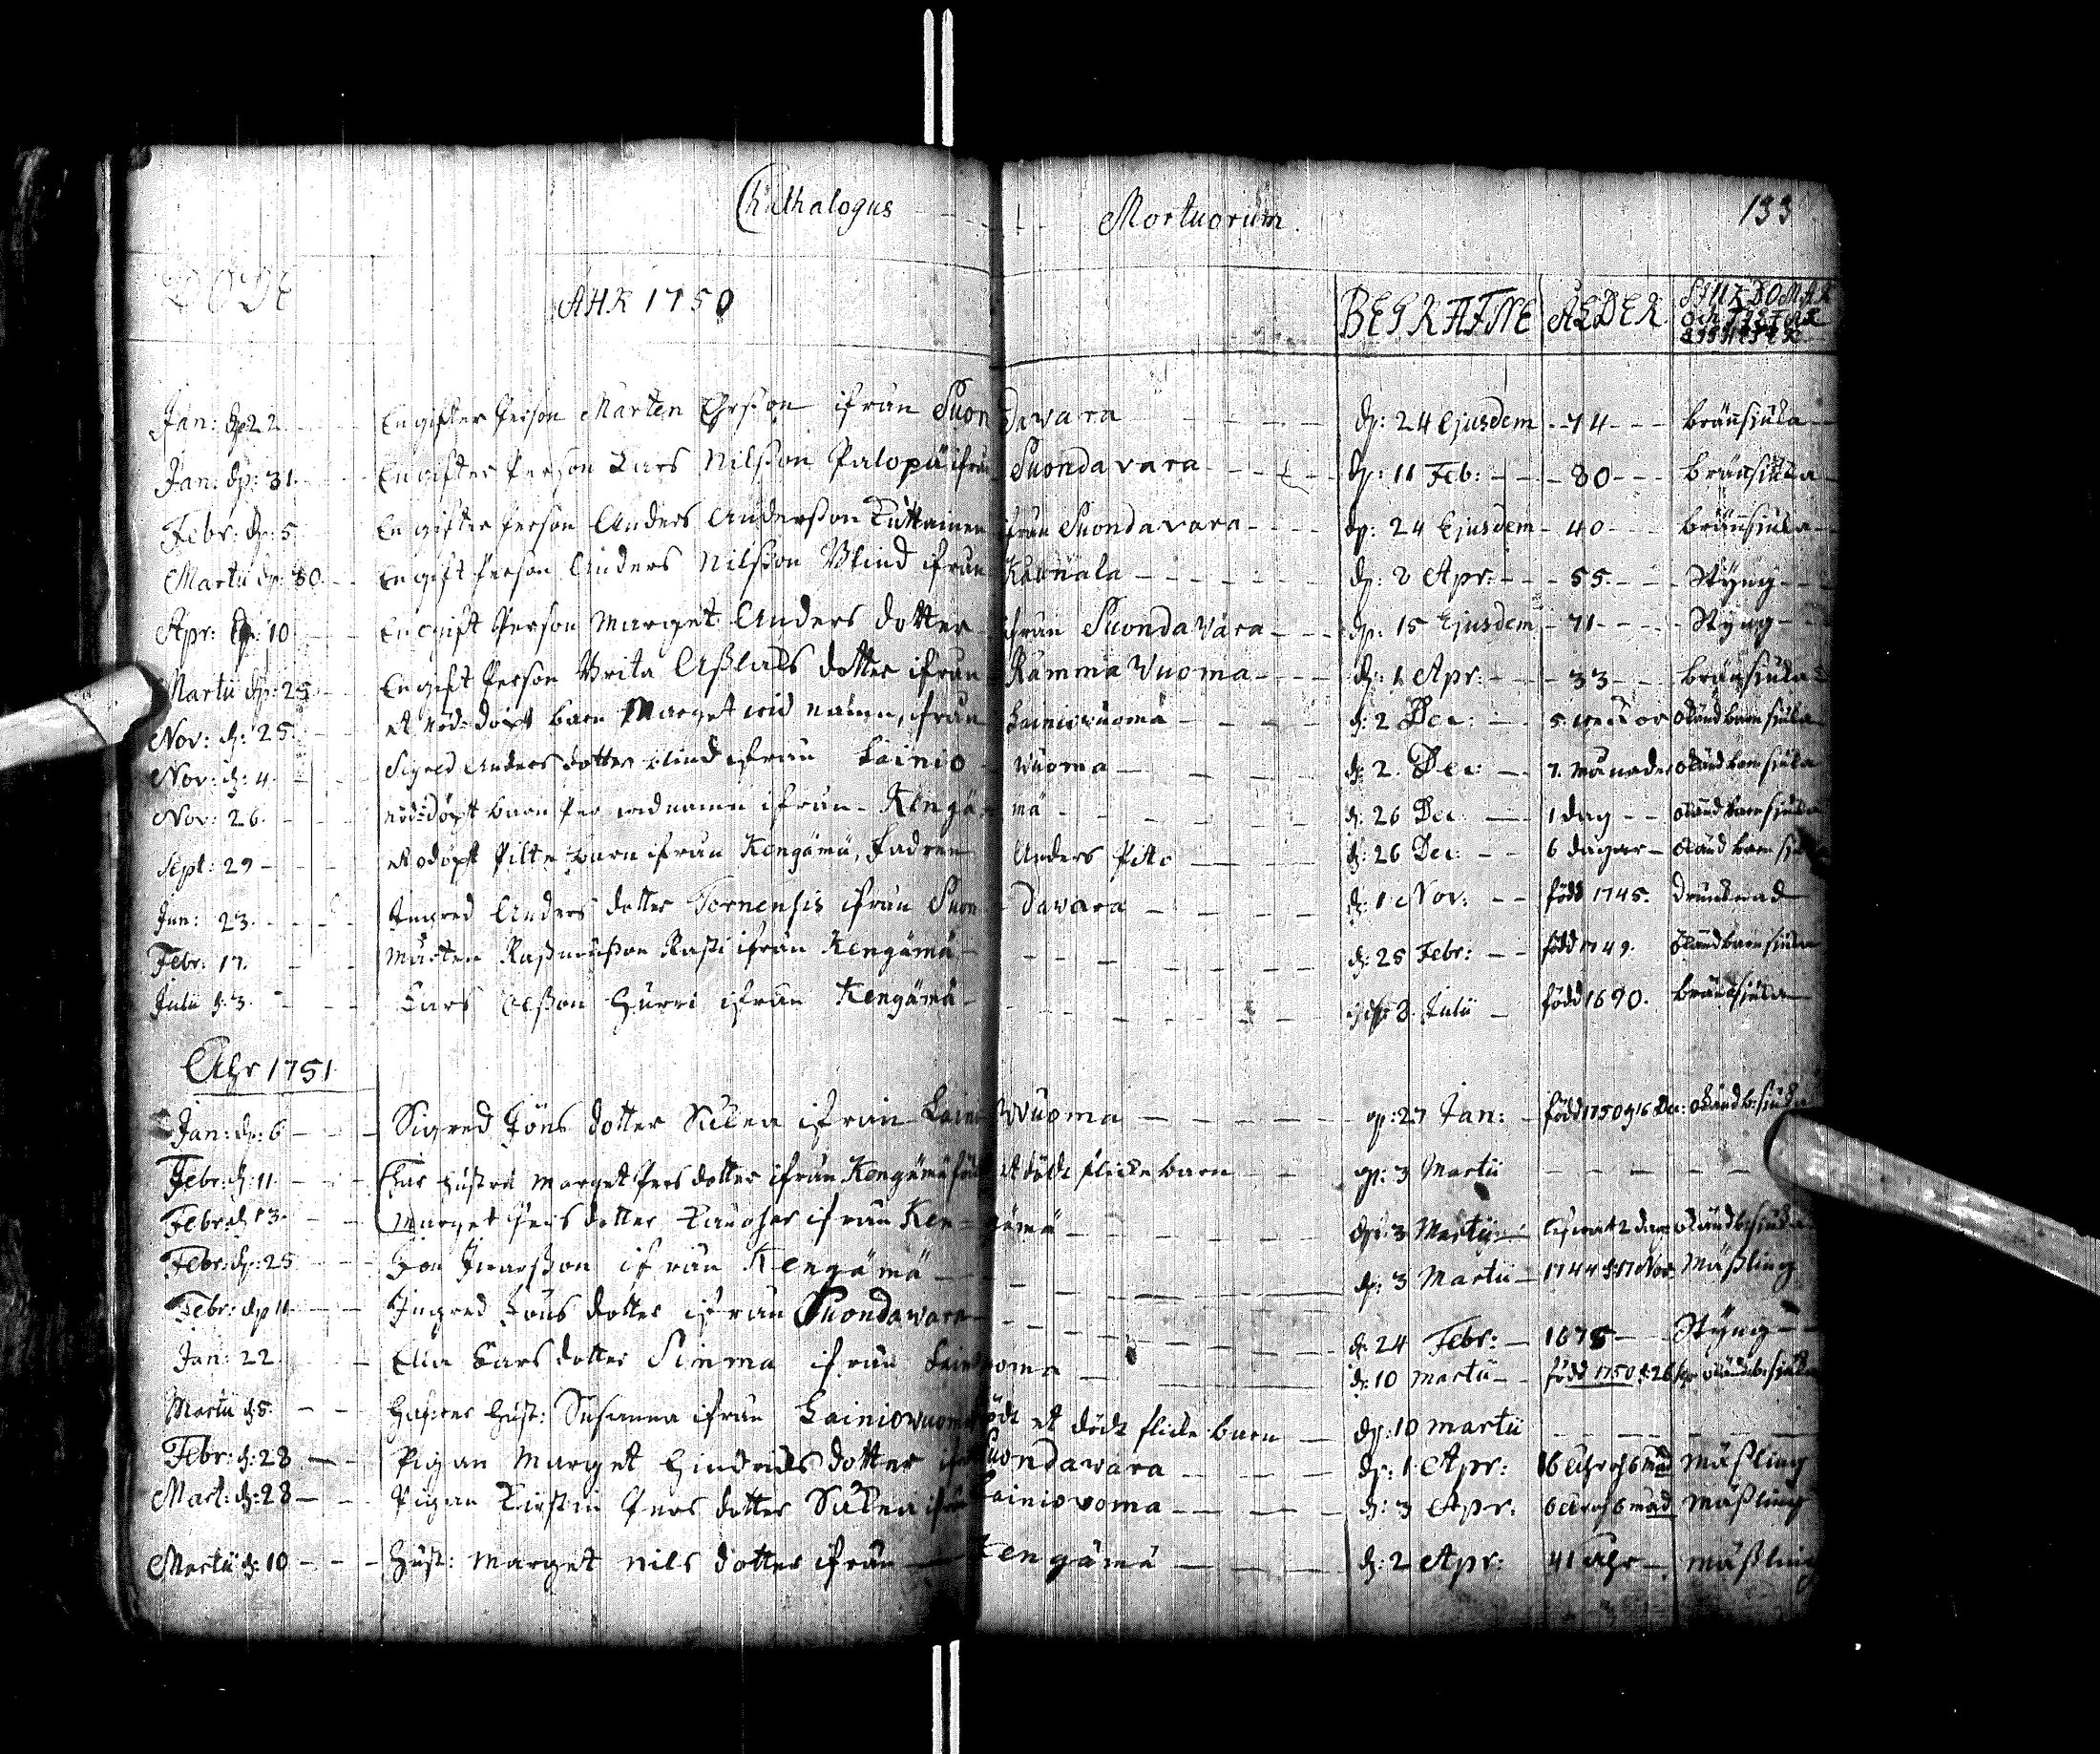 Chathalogus Mortuorum. 133
DÖDE AHR 1750 BEGRAFNE ÅLDER SIUKDOMAR
Jan: d: 22 En gifter Person Mårten Ersson ifrån Suondawara d: 24 Ejusdem 74 brännsiuka
Jan: d: 31. En gifter Person Lars Nilsson Palopä ifrån Suondavara d: 11 Feb: 80 brännsiuka
Febr: d: 5 En gifter Person Anders Andersson Kuttainen ifrån Suondavara d: 24 Ejusdem 40 brännsiuka
Martii d: 30. En gift Person Anders Nilsson Blind ifrån d: 2 Apr: 55 Styng
Apr: d: 10 En gift Person Marget Anders dotter ifrån Suondavara d: 15 Ejusdem 71 Styng
Martii d: 25 En gift Person Brita Asslacs dotter ifrån Rämmä Vuoma d: 1 Apr: 33 brännsiuka
Nov: d: 25. et nöd-döpt barn Marget wid namn, ifrån Lainiowuoma d: 2 Dec: 5. weckor okänd barn siuka
Nov: d: 4. Sigred Anders dotter blind ifrån Lainio wuoma d: 2. Dec: 7. månader okänd barn siuka
Nov: 26. nöd-döpt barn Per wid namn ifrån Kengämä d: 26 Dec: 1 dag okänd barn siuka
Sept: 29 et odöpt Pilte barn ifrån Kengämä, Fadren Anders Pitte d: 26 Dec: 6 dagar okänd barn
Jun: 23. Ingred Anders dotter Tornensis ifrån Suondawara d: 1 Nov: född 1745. Drunknad
Febr: 17. Mårten Rasmusson Rasti ifrån Kengämä d: 25 Febr: född 1749. okänd barn siuka
Julii d: 3. Lars Olsson Hurri ifrån Kengämä 8 Julii född 1690. brännsiuka
Åhr 1751
Jan: d: 6 Sigred Jöns dotter Sikea ifrån Lainio Wuoma d: 27 Jan: född 1750 d 16 Dec: okänd b: siuka
Febr: d: 11 Lars hustru Marget Pers dotter ifrån Kengämä född et dödt flicke barn d: 3 Martii
Febr: d 13. Marget Pers dotter ifrån Kengämä d: 3 Martii lefwat 2 dagar okänd b: siuka
Febr: d: 25 Jon Iwarsson ifrån Kengämä d: 3 Martii 1744 d: 17 Nov: Mässling
Febr: d: 11 Ingred Jöns dotter ifrån Suondawara d: 24 Febr: 1675 Styng
Jan: 22. Elin Lars dotter Simma ifrån d: 10 Martii född 1750 d: 26
Martii d: 5. Hust: Susanna ifrån Lainiowuoma födt et dödt flicke barn d: 10 martii
Febr: d: 28 Pigan Marget Hindrics dotter ifrån Suondawara d: 1 Apr: 16 Åhr och 6 mäd mässling
Mart: d: 28 Pigan Kirstin Pers dotter Sikea ifrån Lainiovoma d: 3 Apr: 6 Åhr och 6 mäd Mässling
Martii d: 10 Hust: Marget Nils dotter ifrån Kengämä d: 2 Apr: 41 Åhr mässling